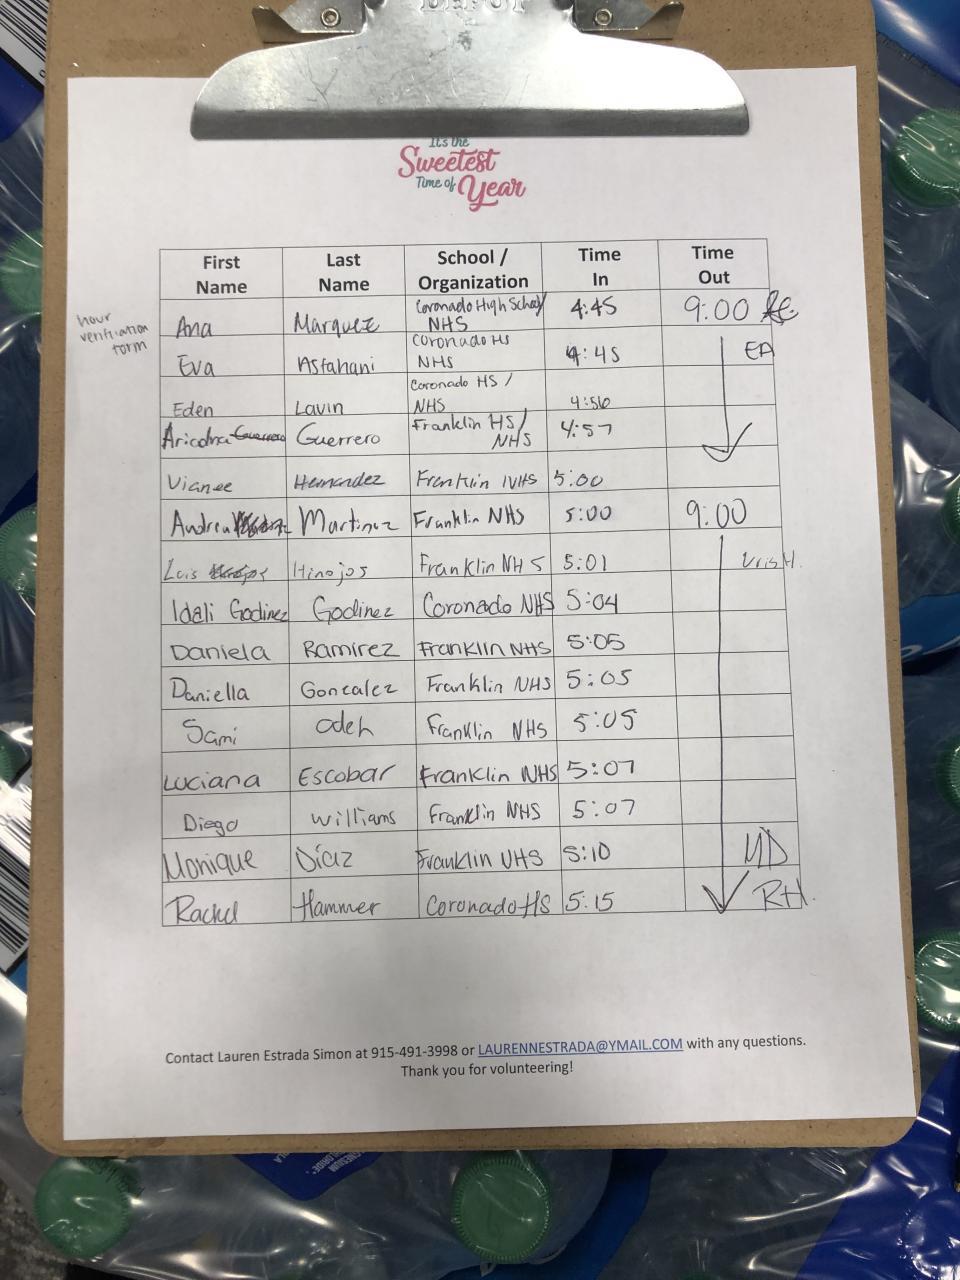 DEPOT
It's the
Sweetest
Time of Year
First Name Last Name School / Organization Time In Time Out
hour
verifiation
form
Ana Marquez Coronado High School NHS 4:45 9:00
Eva Asfahani Coronado HS NHS 4:45 EA
Eden Lavin Coronado HS / NHS 4:56
Guerrero Guerrero Franklin HS / NHS 4:57
Vianee Hernandez Franklin NHS 5:00
Andrea Martinez Franklin NHS 5:00 9:00
Luis Hinojos Franklin NHS 5:01
Idali Godinez Godinez Coronado NHS 5:04
Daniela Ramirez Franklin NHS 5:05
Daniella Gonzalez Franklin NHS 5:05
Sami Odeh Franklin NHS 5:05
Luciana Escobar Franklin NHS 5:07
Diego Williams Franklin NHS 5:07
Monique Díaz Franklin NHS 5:10 MD
Rachel Hammer Coronado HS 5:15 RH.
Contact Lauren Estrada Simon at 915-491-3998 or LAURENNESTRADA@YMAIL.COM with any questions.
Thank you for volunteering!